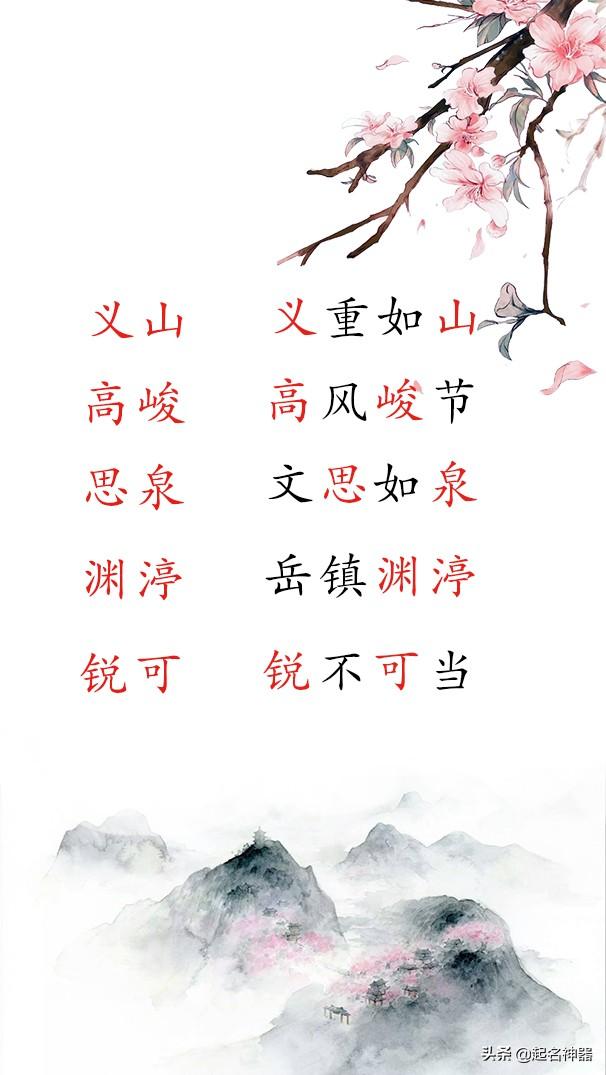 义山 义重如山
高峻 高风峻节
思泉 文思如泉
渊渟 岳镇渊渟
锐可 锐不可当
头条 @起名神器